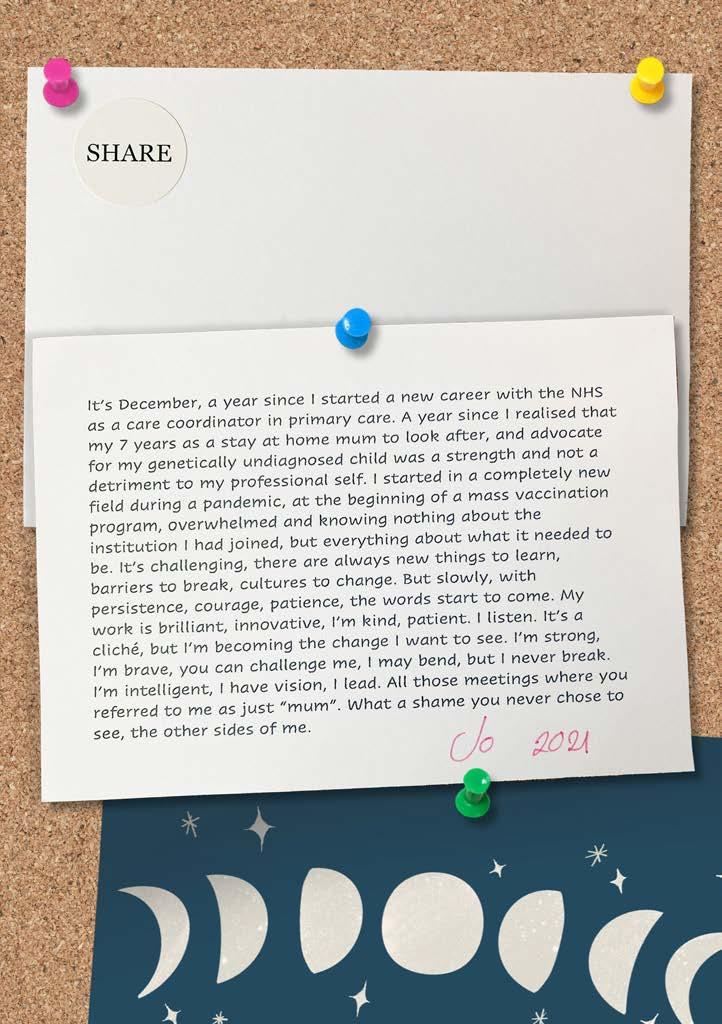 SHARE
It's December, a year since I started a new career with the NHS
as a care coordinator in primary care. A year since I realised that
my 7 years as a stay at home mum to look after, and advocate
for my genetically undiagnosed child was a strength and not a
detriment to my professional self. I started in a completely new
field during a pandemic, at the beginning of a mass vaccination
program, overwhelmed and knowing nothing about the
institution I had joined, but everything about what it needed to
be. It's challenging, there are always new things to learn,
barriers to break, cultures to change. But slowly, with
persistence, courage, patience, the words start to come. My
work is brilliant, innovative, I'm kind, patient. I listen. It's a
cliché, but I'm becoming the change I want to see. I'm strong,
I'm brave, you can challenge me, I may bend, but I never break.
I'm intelligent, I have vision, I lead. All those meetings where you
referred to me as just “mum”. What a shame you never chose to
see, the other sides of me.
Jo 2021